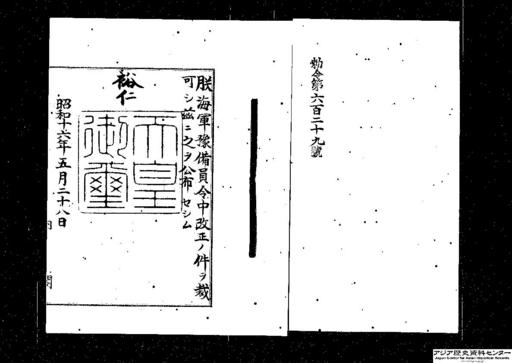 勅令第六百二十九號
朕海軍豫備員令中改正ノ件ヲ裁
可シ茲ニ之ヲ公布セシム
裕仁
天皇
御璽
昭和十六年五月二十八日
内閣
アジア歴史資料センター
Japan Center for Asian Historical Records